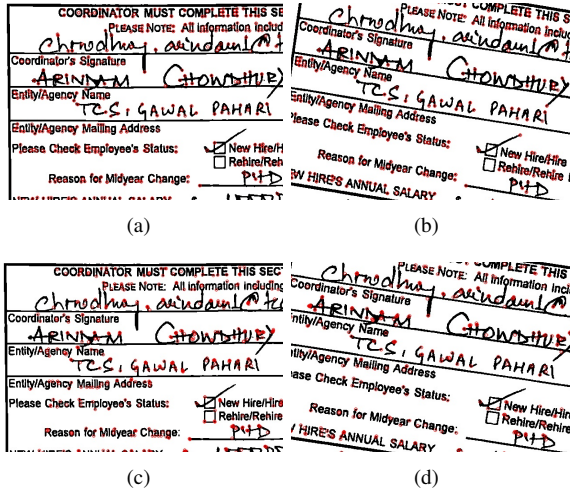 COORDINATOR MUST COMPLETE THIS S
PLEASE NOTE: All information includ
Chrowdhuy, arindam1@
Coordinator's Signature
ARINDAM CHOWDHURY
Entity/Agency Name
TCS, GAWAL PAHARI
Entity/Agency Mailing Address
Please Check Employee's Status:
New Hire/H
Rehire/Rehire
Reason for Midyear Change: PHD
NEW HIRE'S ANNUAL SALARY
(a)
COMPLETE THIS S
PLEASE NOTE: All information includ
Chrowdhuy, arindam1@
Coordinator's Signature
ARINDAM CHOWDHURY
Entity/Agency Name
TCS, GAWAL PAHARI
Entity/Agency Mailing Address
lease Check Employee's Status:
New Hire/Hire
Rehire/Rehire
Reason for Midyear Change: PHD
EW HIRE'S ANNUAL SALARY
(b)
COORDINATOR MUST COMPLETE THIS SEC
PLEASE NOTE: All information including
Chrowdhuy, arindam1@tc
Coordinator's Signature
ARINDAM CHOWDHURY
Entity/Agency Name
TCS, GAWAL PAHARI
Entity/Agency Mailing Address
Please Check Employee's Status:
New Hire/Hire
Rehire/Rehire
Reason for Midyear Change: PHD
(c)
COMPLETE THIS
PLEASE NOTE: All information inclu
Chrowdhuy, arindam1@
Coordinator's Signature
ARINDAM CHOWDHURY
ntity/Agency Name
TCS, GAWAL PAHARI
ntity/Agency Mailing Address
ase Check Employee's Status:
New Hire/Hi
Rehire/Rehire
Reason for Midyear Change: PHD
V HIRE'S ANNUAL SALARY
(d)